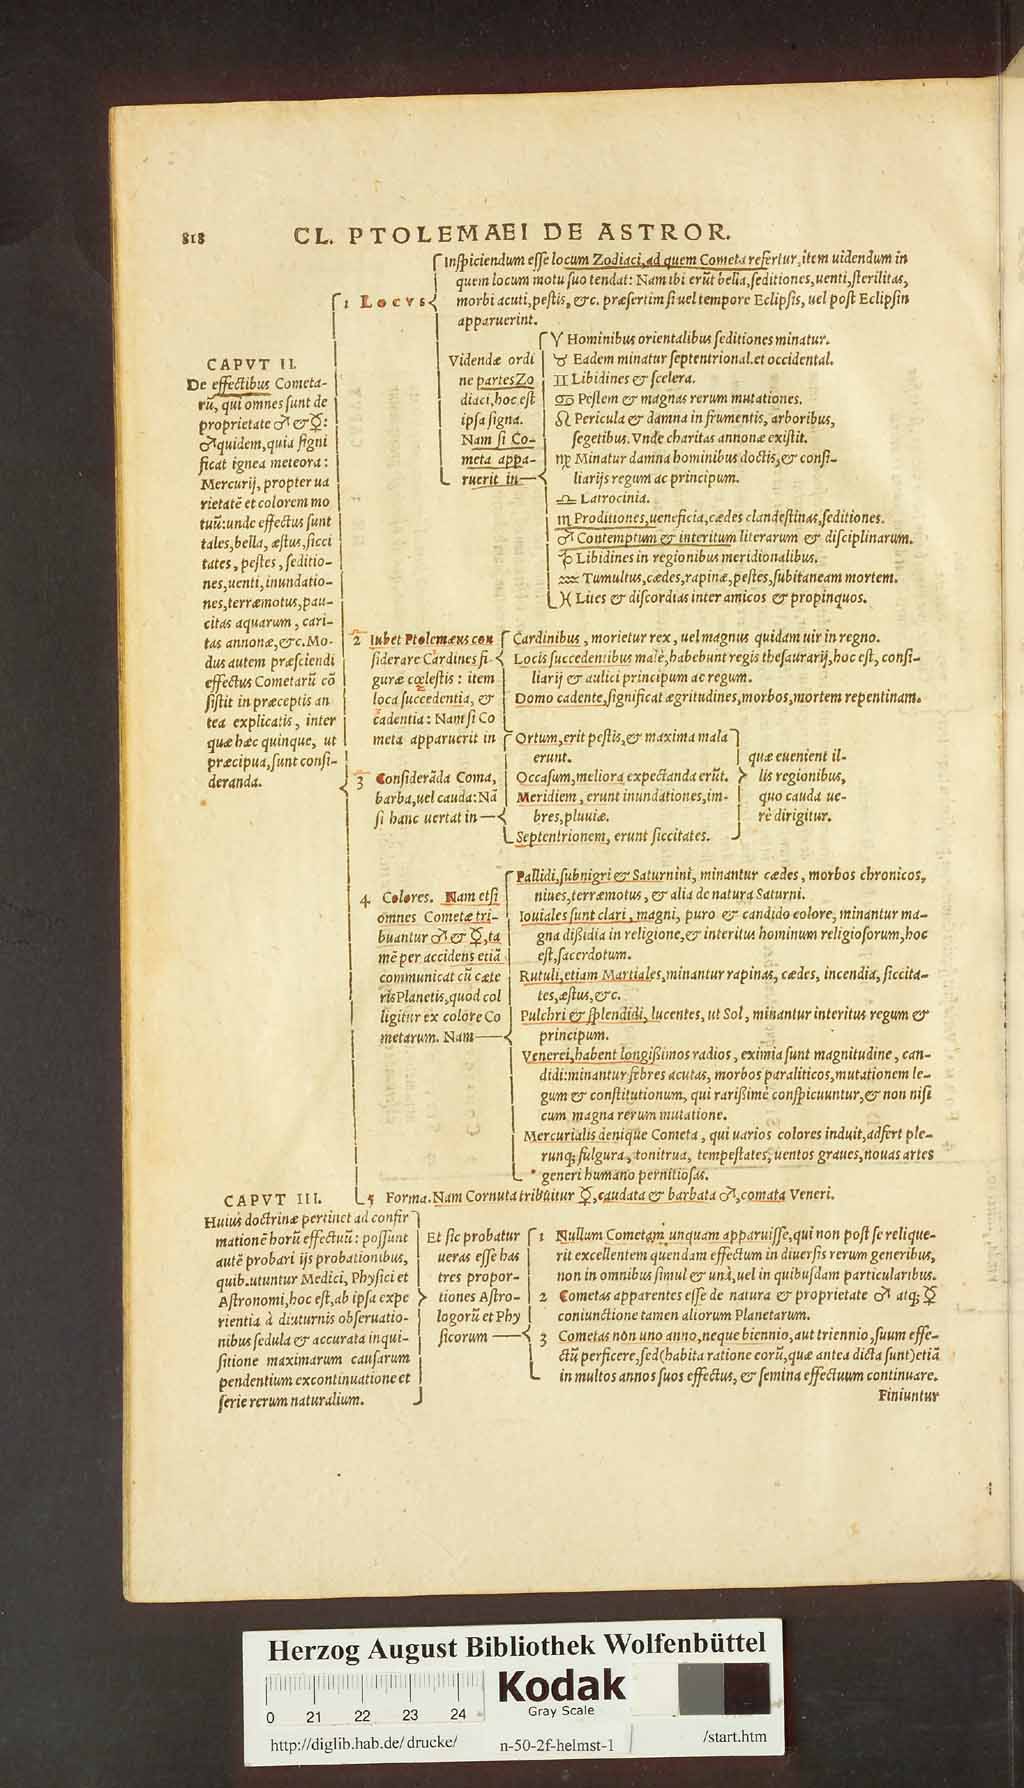 818 CL. PTOLEMAEI DE ASTROR.
CAPVT II.
De effectibus Cometa-
rũ, qui omnes sunt de
proprietate ♂ & ☿:
♂ quidem, quia signi
ficat ignea meteora:
Mercurij, propter ua
rietatẽ et colorem mo
tuũ: unde effectus sunt
tales, bella, æstus, sicci
tates, pestes, seditio-
nes, uenti, inundatio-
nes, terræmotus, pau-
citas aquarum, cari-
tas annonæ, &c. Mo-
dus autem præsciendi
effectus Cometarũ cõ
sistit in præceptis an
tea explicatis, inter
quæ hæc quinque, ut
præcipua, sunt consi-
deranda.
1 Locvs
Inspiciendum esse locum Zodiaci, ad quem Cometa refertur, item uidendum in
quem locum motu suo tendat: Nam ibi erũt bella, seditiones, uenti, sterilitas,
morbi acuti, pestis, &c. præsertim si uel tempore Eclipsis, uel post Eclipsin
apparuerint.
Videndæ ordi
ne partes Zo
diaci, hoc est
ipsa signa.
Nam si Co-
meta appa-
ruerit in
♈ Hominibus orientalibus seditiones minatur.
♉ Eadem minatur septentrional. et occidental.
♊ Libidines & scelera.
♋ Pestem & magnas rerum mutationes.
♌ Pericula & damna in frumentis, arboribus,
segetibus. Vnde charitas annonæ existit.
♍ Minatur damna hominibus doctis, & consi-
liarijs regum ac principum.
♎ Latrocinia.
♏ Proditiones, ueneficia, cædes clandestinas, seditiones.
♂ Contemptum & interitum literarum & disciplinarum.
♑ Libidines in regionibus meridionalibus.
♒ Tumultus, cædes, rapinæ, pestes, subitaneam mortem.
♓ Lites & discordias inter amicos & propinquos.
2 Iubet Ptolemæus con
siderare Cardines fi-
guræ cœlestis: item
loca succedentia, &
cadentia: Nam si Co
meta apparuerit in
Cardinibus, morietur rex, uel magnus quidam uir in regno.
Locis succedentibus malè, habebunt regis thesaurarij, hoc est, consi-
liarij & aulici principum ac regum.
Domo cadente, significat ægritudines, morbos, mortem repentinam.
3 Considerãda Coma,
barba, uel cauda: Nã
si hanc uertat in
Ortum, erit pestis, & maxima mala
erunt.
Occasum, meliora expectanda erũt.
Meridiem, erunt inundationes, im-
bres, pluuiæ.
Septentrionem, erunt siccitates.
quæ euenient il-
lis regionibus,
quo cauda ue-
rè dirigitur.
4 Colores. Nam etsi
omnes Cometæ tri-
buantur ♂ & ☿, ta
mẽ per accidens etiã
communicat cũ cæte
ris Planetis, quod col
ligitur ex colore Co
metarum. Nam
Pallidi, subnigri & Saturnini, minantur cædes, morbos chronicos,
niues, terræmotus, & alia de natura Saturni.
Iouiales sunt clari, magni, puro & candido colore, minantur ma-
gna dißidia in religione, & interitus hominum religiosorum, hoc
est, sacerdotum.
Rutuli, etiam Martiales, minantur rapinas, cædes, incendia, siccita-
tes, æstus, &c.
Pulchri & splendidi, lucentes, ut Sol, minantur interitus regum &
principum.
Venerei, habent longißimos radios, eximia sunt magnitudine, can-
didi: minantur febres acutas, morbos paraliticos, mutationem le-
gum & constitutionum, qui rarißimè conspicuuntur, & non nisi
cum magna rerum mutatione.
Mercurialis denique Cometa, qui uarios colores induit, adfert ple-
runq; fulgura, tonitrua, tempestates, uentos graues, nouas artes
generi humano pernitiosas.
5 Forma. Nam Cornuta tribuitur ☿, caudata & barbata ♂, comata Veneri.
CAPVT III.
Huius doctrinæ pertinet ad confir
mationẽ horũ effectuũ: possunt
autẽ probari ijs probationibus,
quib. utuntur Medici, Physici et
Astronomi, hoc est, ab ipsa expe
rientia à diuturnis obseruatio-
nibus sedula & accurata inqui-
sitione maximarum causarum
pendentium ex continuatione et
serie rerum naturalium.
Et sic probatur
ueras esse has
tres propor-
tiones Astro-
logorũ et Phy
sicorum
1 Nullum Cometam unquam apparuisse, qui non post se relique-
rit excellentem quendam effectum in diuersis rerum generibus,
non in omnibus simul & unà, uel in quibusdam particularibus.
2 Cometas apparentes esse de natura & proprietate ♂ atq; ☿
coniunctione tamen aliorum Planetarum.
3 Cometas non uno anno, neque biennio, aut triennio, suum effe-
ctũ perficere, sed (habita ratione eorũ, quæ antea dicta sunt) etiã
in multos annos suos effectus, & semina effectuum continuare.
Finiuntur
Herzog August Bibliothek Wolfenbüttel
Kodak
Gray Scale
0 21 22 23 24
http://diglib.hab.de/drucke/ n-50-2f-helmst-1 /start.htm